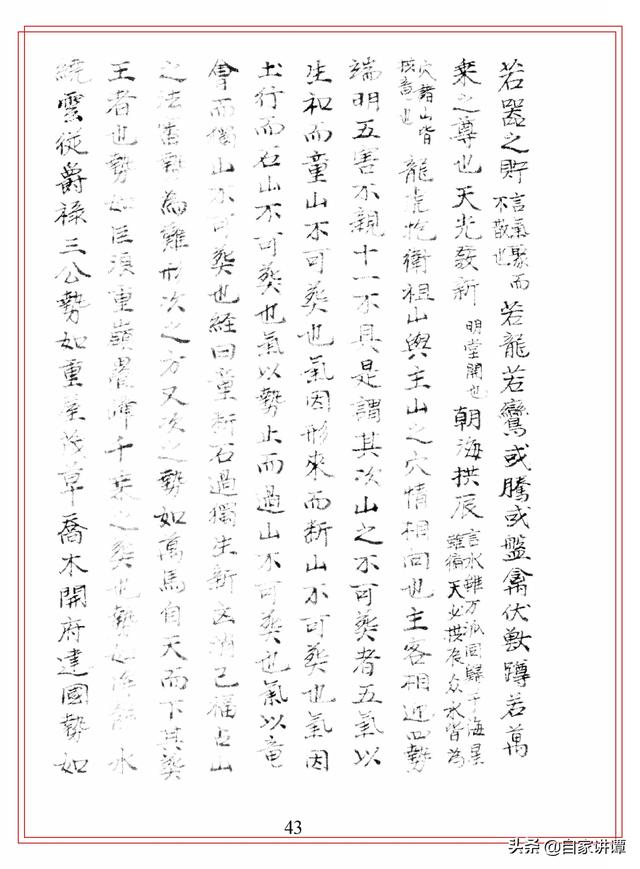 若器之貯言氣聚而不散也若龍若鸞或騰或盤禽伏獸蹲若萬
乘之尊也天光發新明堂開也朝海拱辰言水雖万派回歸于海星雖稀天必拱辰众水皆為
穴諸山皆竜也龍虎抱衛祖山與主山之穴情相向也主客相近四勢
端明五害不親十一不具是謂其次山之不可葬者五氣以
生和而童山不可葬也氣因形來而断山不可葬也氣因
土行而石山不可葬也氣以勢止而過山不可葬也氣以竜
會而獨山不可葬也経曰童断石過獨生新凶消已福占山
之法勢為難形次之方又次之勢如萬馬自天而下其葬
王者也勢如巨浪重嶺疊障千乘之葬也勢如降龍水
繞雲従爵禄三公勢如重屋茂草喬木開府建國勢如
43
头条 @自家讲谭